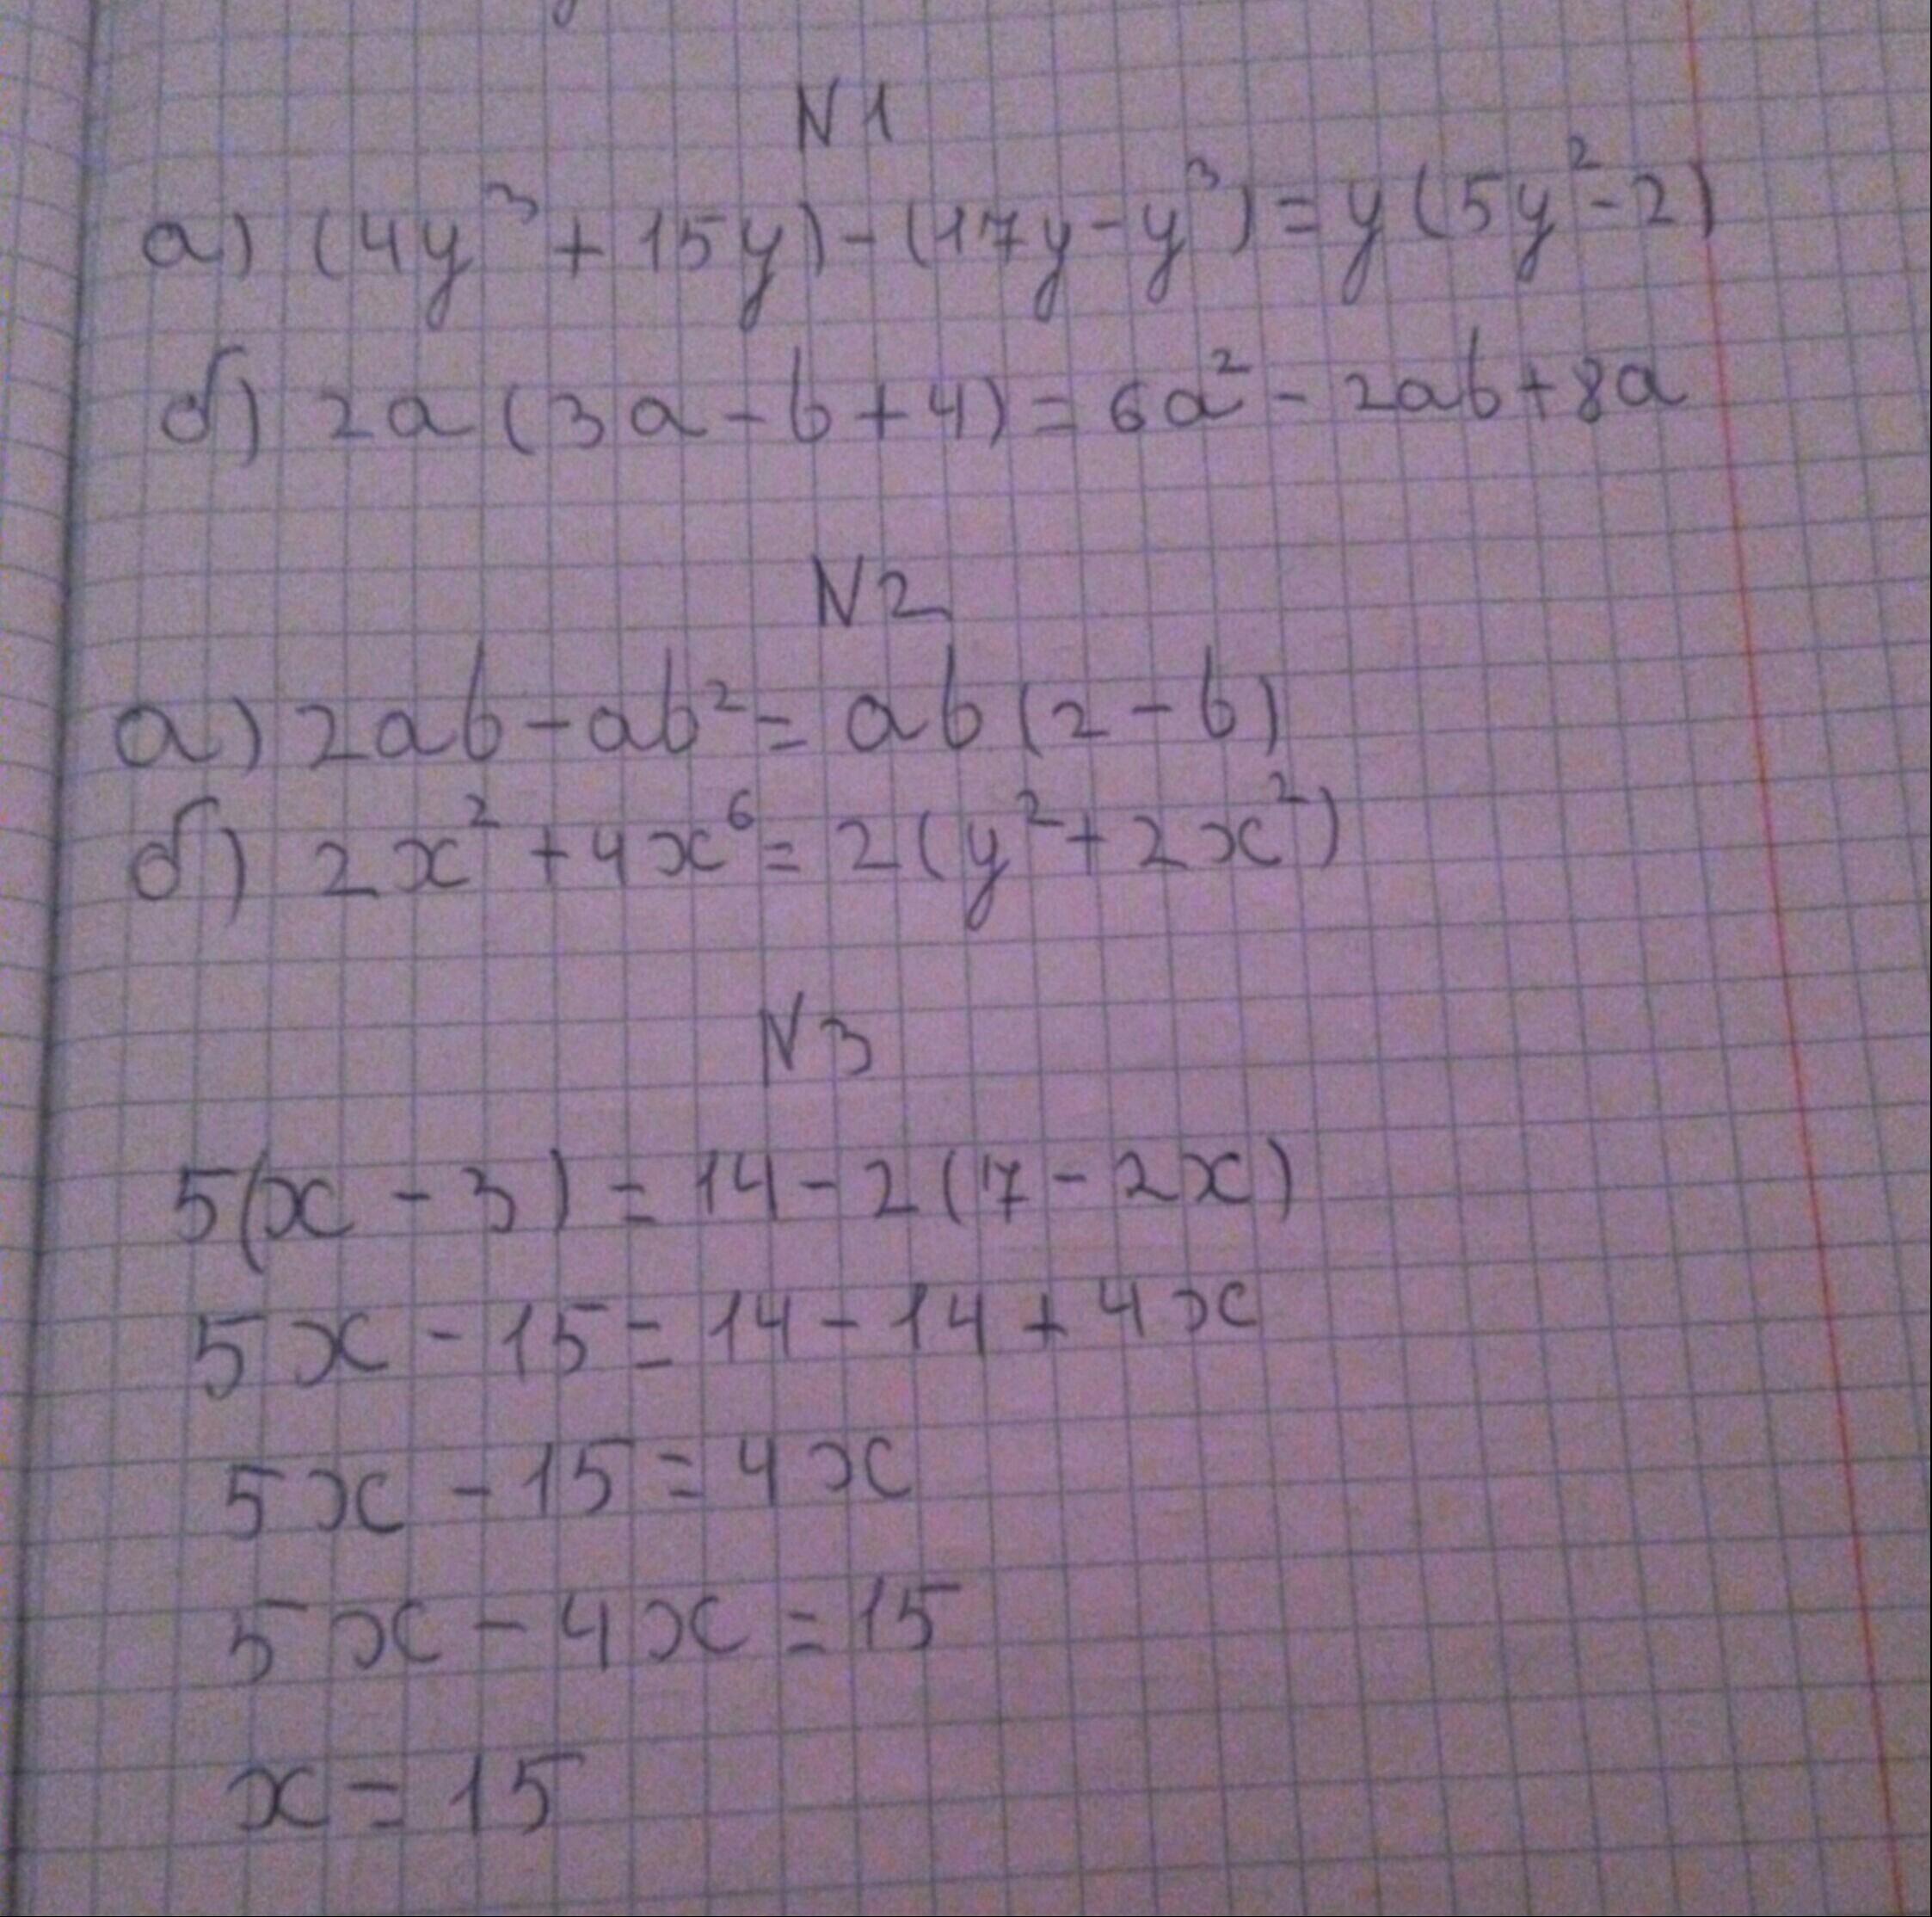 N1
а) (4y³ + 15y) - (17y - y³) = y(5y² - 2)
б) 2a (3a - b + 4) = 6a² - 2ab + 8a
N2
а) 2ab - ab² = ab (2 - b)
б) 2x² + 4x⁶ = 2 (y² + 2x²)
N3
5(x - 3) = 14 - 2 (7 - 2x)
5x - 15 = 14 - 14 + 4x
5x - 15 = 4x
5x - 4x = 15
x = 15